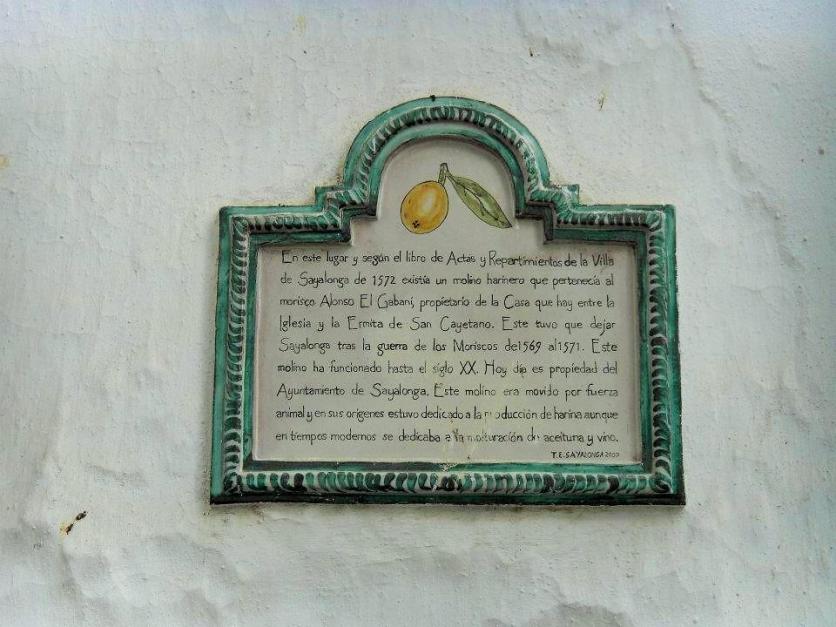 En este lugar y según el libro de Actas y Repartimientos de la Villa
de Sayalonga de 1572 existía un molino harinero que pertenecía al
morisco Alonso El Gabaní, propietario de la Casa que hay entre la
Iglesia y la Ermita de San Cayetano. Este tuvo que dejar
Sayalonga tras la guerra de los Moriscos de 1569 al 1571. Este
molino ha funcionado hasta el siglo XX. Hoy día es propiedad del
Ayuntamiento de Sayalonga. Este molino era movido por fuerza
animal y en sus orígenes estuvo dedicado a la producción de harina aunque
en tiempos modernos se dedicaba a la molturación de aceituna y vino.
T.E. SAYALONGA